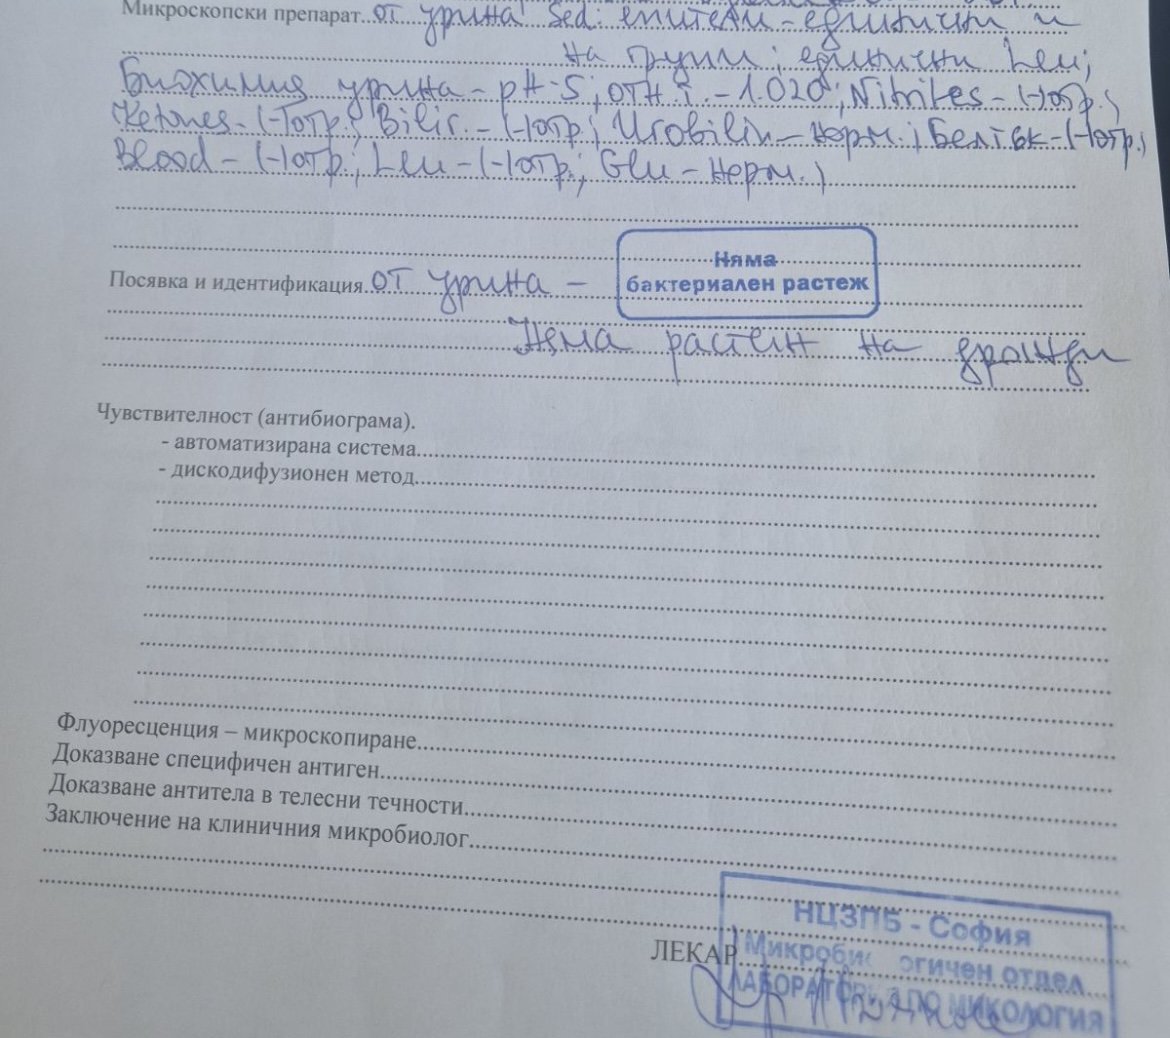 Микроскопски препарат от урина Sed. епители - единични и
на групи; единични Leu;
Биохимия урина - pH-5; отн. т. - 1.020; Nitrites - (-)отр.;
Ketones - (-)отр.; Bilir. - (-)отр.; Urobilin - норм.; Белтък - (-)отр.;
Blood - (-)отр.; Leu - (-)отр.; Glu - норм.)
Няма
бактериален растеж
Посявка и идентификация от урина -
Няма растеж на дрожди
Чувствителност (антибиограма).
- автоматизирана система
- дискодифузионен метод
Флуоресценция – микроскопиране
Доказване специфичен антиген
Доказване антитела в телесни течности
Заключение на клиничния микробиолог
НЦЗПБ - София
ЛЕКАР
отдел
ЛАБОРАТОРИЯ ПО МИКОЛОГИЯ